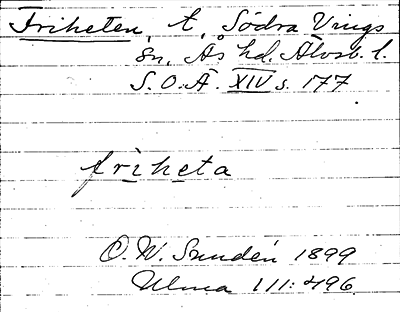 Friheten, t, Södra Vings
sn, Ås hd. Älvsb. l.
S. O. Ä. XIV s. 177
friheta
O. W. Sundén 1899
Ulma 111:496.